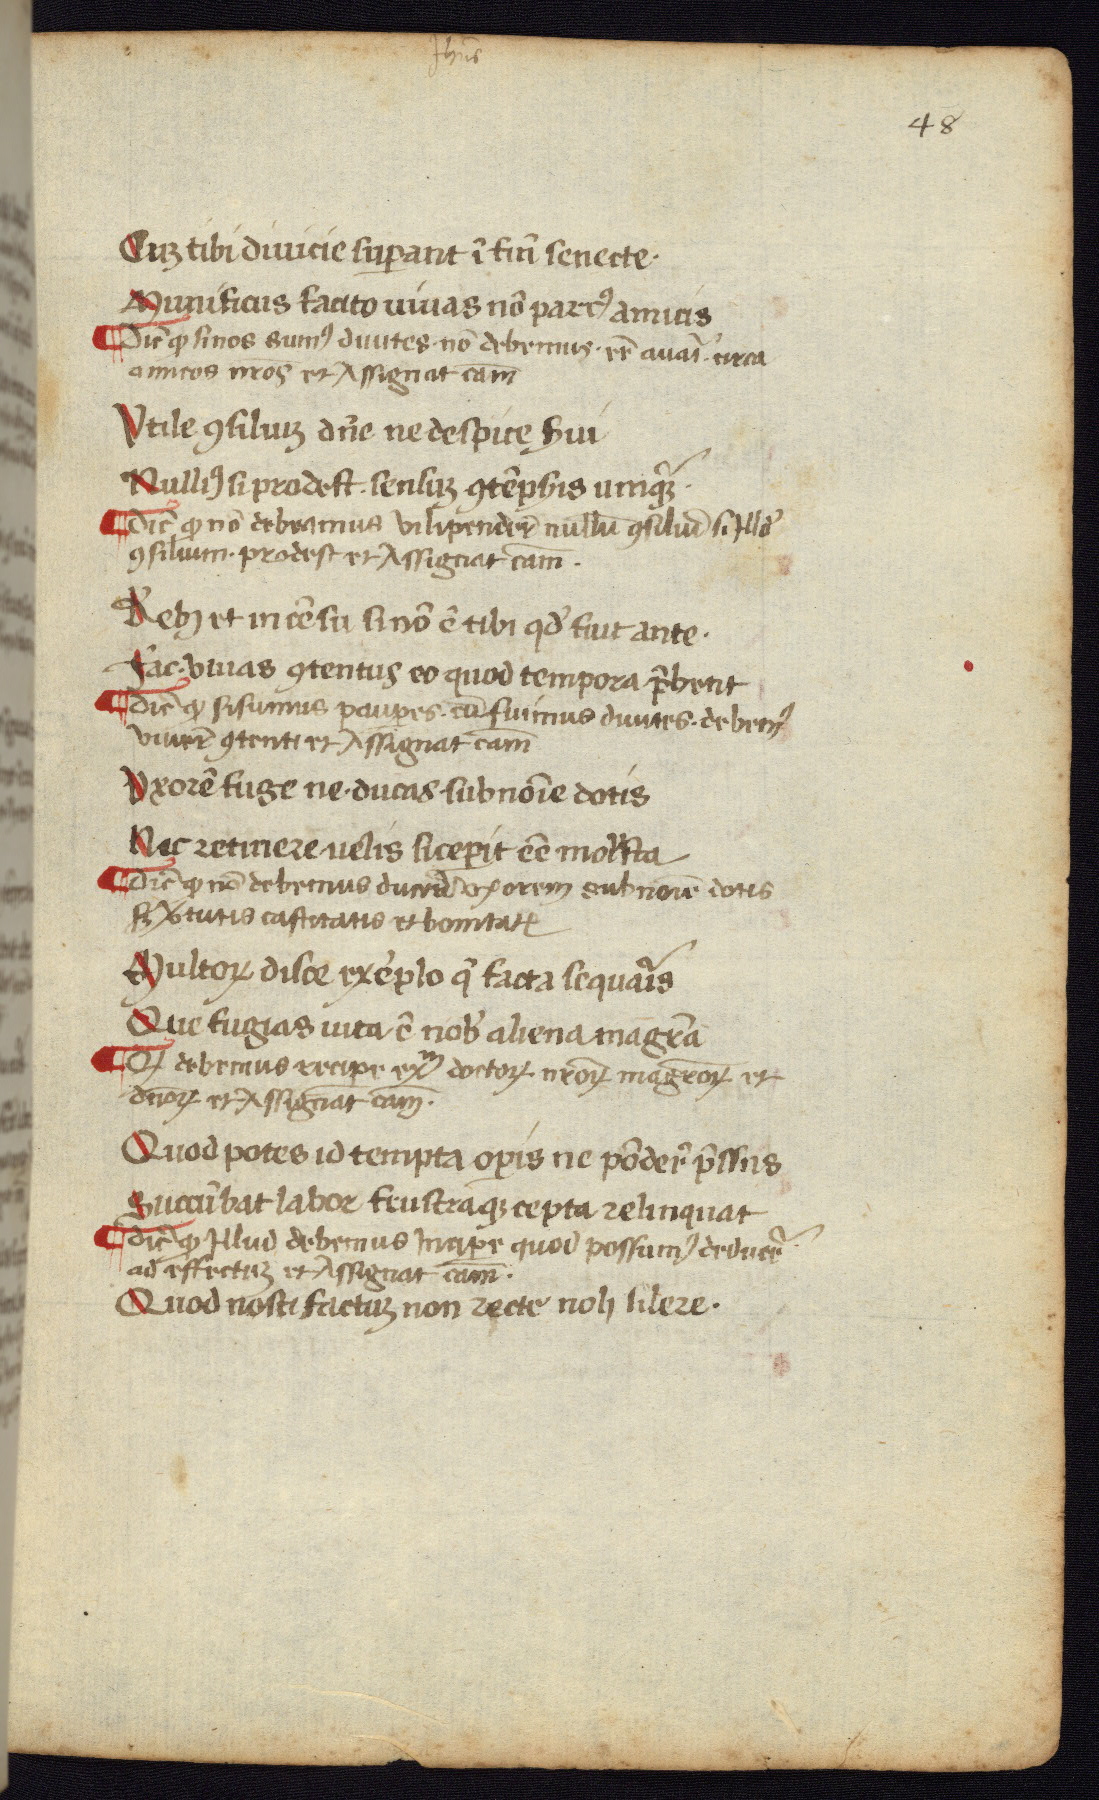 Jhūs
48
Cuꝫ tibi diuicie suꝑant ī fin̄ senecte·
Munificus facito uiuas nō parcꝰ amicis
Dic̄ ꝙ si nos sumꝰ diuites· nō debemus· eē auar̄ circa
amicos nr̄os et Assignat cām
Vtile ꝯsiliuꝫ dn̄e ne despice serui
Nulliꝰ si prodest· sensuꝫ ꝯtēpsis umqꝫ·
Dic̄ ꝙ nō debeamus vilipender̄ nullū ꝯsiliū si Illd̓
ꝯsilium· prodest et Assignat cām·
Rebꝫ et in cēsu si nō ē tibi qd̓ fuit ante·
Fac· viuas ꝯtentus eo quod tempora p̄bent
Dic̄ ꝙ si sumus pauꝑes· cū fuimus diuites· debemꝰ
viuer̄ ꝯtenti et Assignat cām
Vxorē fuge ne· ducas· sub noīe dotis
Nec retinere uelis si ceꝑit eē molesta
Dic̄ ꝙ nō debemus ducere vxorem sub noīe dotis
sꝫ v̓tutis castitatis et bonitatis
Multoꝝ disce exēplo q̄ facta sequaris
Que fugias uita ē nob̓ aliena magr̄a
Ꝙ debemus reciꝑe exᵐ doctoꝝ nr̄oꝝ magr̄oꝝ et
dn̄oꝝ et Assignat cām·
Quod potes id tempta oꝑis ne pōder̄ p̄ssus
Succūbat labor frustraqꝫ cepta relinquat
Dic̄ ꝙ Illud debemus Inciꝑe quod possumꝰ deducer̄
ad effectuꝫ et Assignat cām·
Quod nosti factuꝫ non recte noli silere·